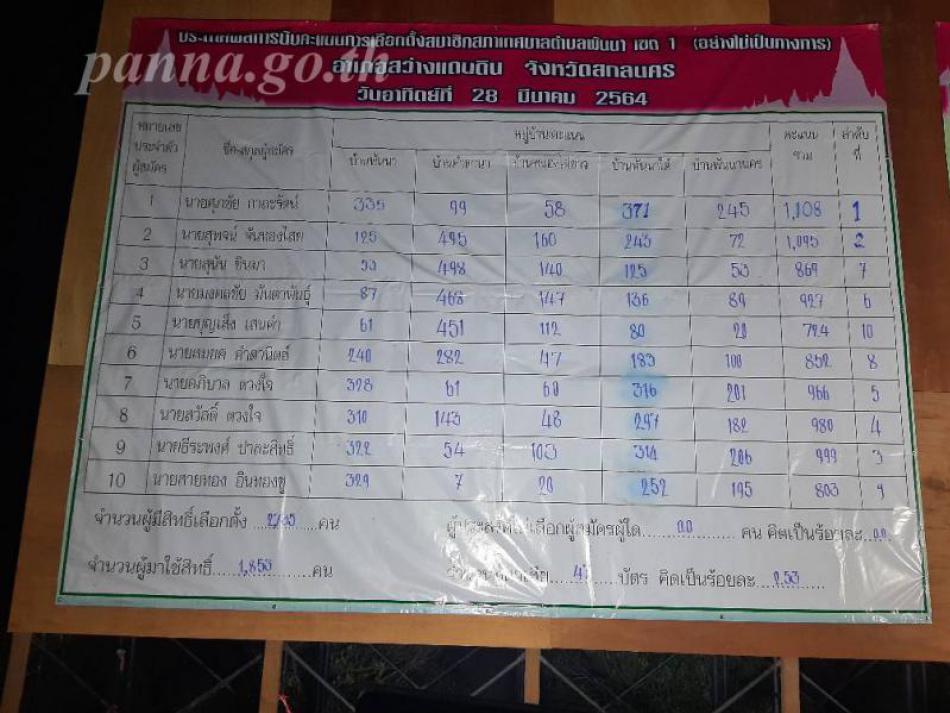 panna.go.th
ประกาศผลการนับคะแนนการเลือกตั้งสมาชิกสภาเทศบาลตำบลพันนา เขต 1 (อย่างไม่เป็นทางการ)
อำเภอสว่างแดนดิน จังหวัดสกลนคร
วันอาทิตย์ที่ 28 มีนาคม 2564
หมายเลขประจำตัวผู้สมัคร ชื่อ-สกุลผู้สมัคร หมู่บ้าน/คะแนน คะแนนรวม ลำดับที่
บ้านพันนา บ้านพันนาใต้ บ้านพันนานคร
1 นายศุภชัย กาญะรัตน์ 335 99 58 371 245 1,108 1
2 นายสุพจน์ 125 495 160 243 72 1,095 2
3 นายสุนัน ชินมา 53 498 140 125 53 869 7
4 นายมงคลชัย มันตาพันธุ์ 87 468 147 136 89 927 6
5 นายบุญเส็ง เสนคำ 61 451 112 80 20 724 10
6 นายสมยศ 240 282 47 183 100 852 8
7 นายอภิบาล ดวงใจ 328 61 60 316 201 966 5
8 นายสวัสดิ์ ดวงใจ 310 143 48 297 182 980 4
9 นายธีระพงศ์ ปาละสิทธิ์ 322 54 103 314 206 999 3
10 นายสายทอง อินทองชู 329 7 20 252 195 803 9
จำนวนผู้มีสิทธิ์เลือกตั้ง คน ผู้ประสงค์ไม่เลือกผู้สมัครผู้ใด 00 คน คิดเป็นร้อยละ
จำนวนผู้มาใช้สิทธิ์ 1,853 คน จำนวนบัตรเสีย 47 บัตร คิดเป็นร้อยละ 2.53